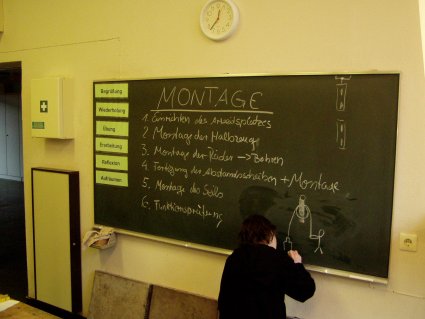 Begrüßung
Wiederholung
Übung
Erarbeitung
Reflexion
Aufräumen
MONTAGE
1. Einrichten des Arbeitsplatzes
2. Montage der Halbzeuge
3. Montage der Räder -> Bohren
4. Fertigung der Abstandsscheiben + Montage
5. Montage des Seils
6. Funktionsprüfung